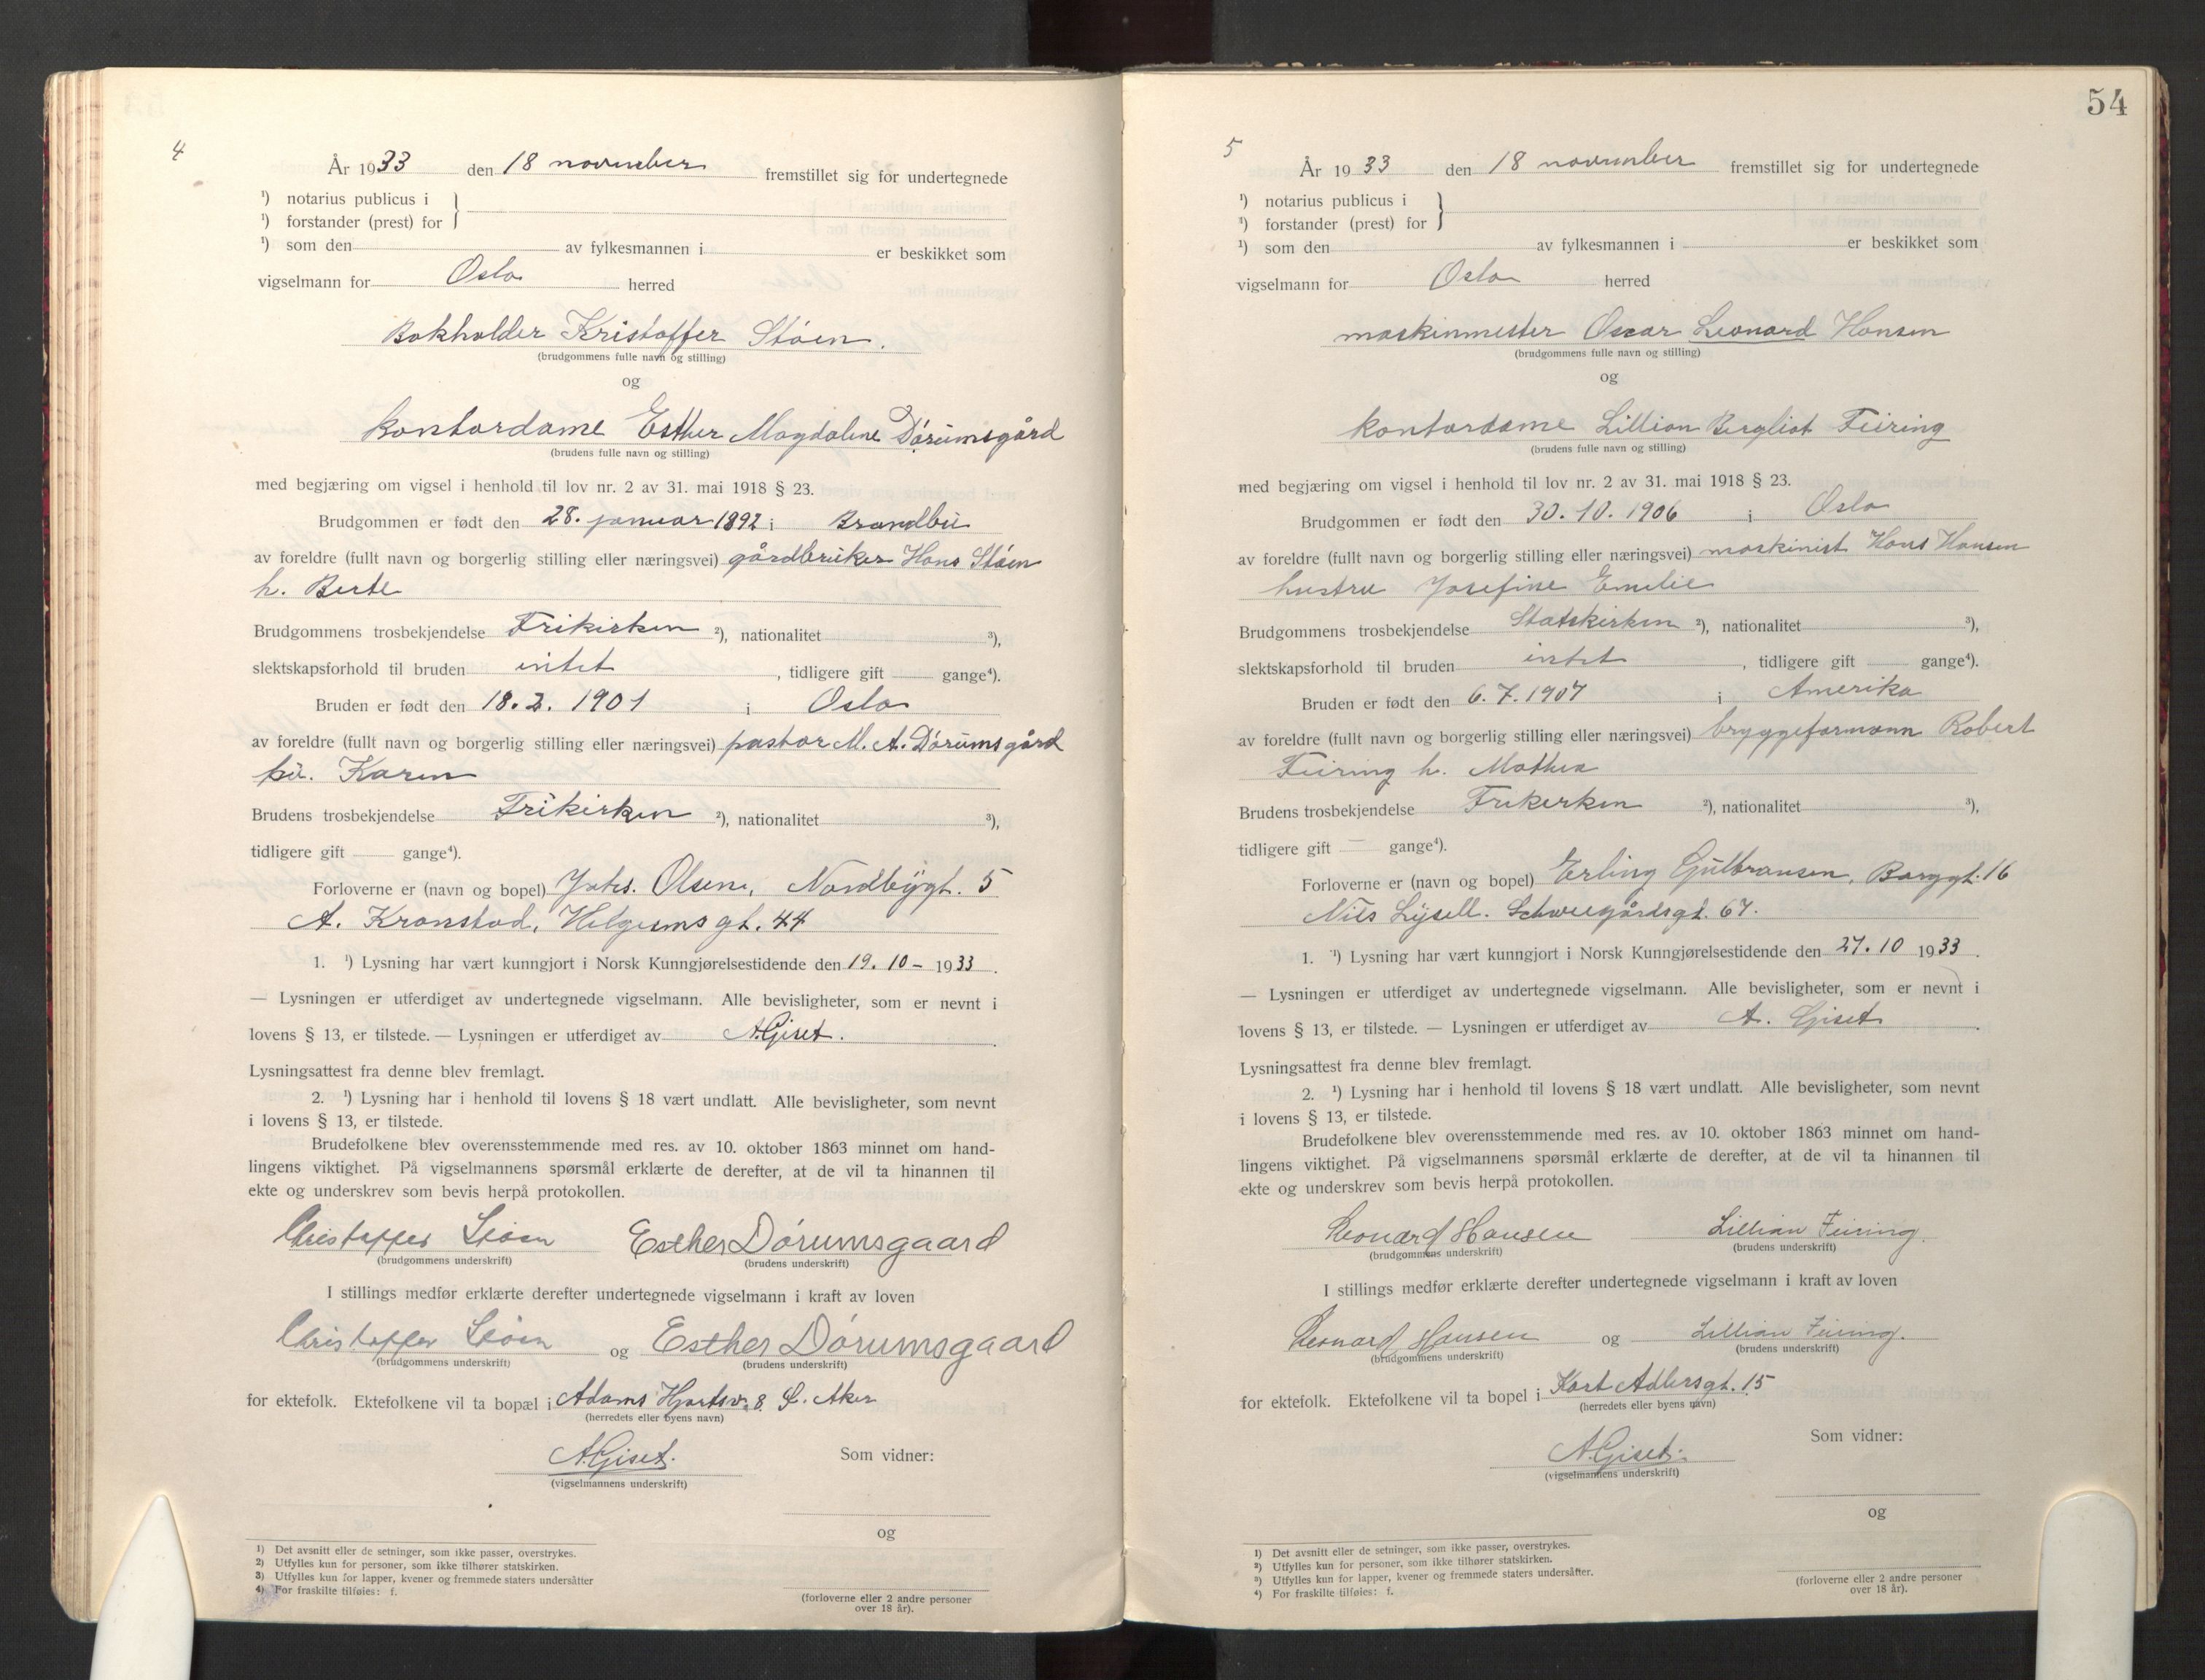 4
År 1933 den 18 november fremstillet sig for undertegnede
¹) notarius publicus i
¹) forstander (prest) for
¹) som den av fylkesmannen i er beskikket som
vigselmann for Oslo herred
Bokholder Kristoffer Støen.
(brudgommens fulle navn og stilling)
og
kontordame Esther Magdalene Dørumsgård
(brudens fulle navn og stilling)
med begjæring om vigsel i henhold til lov nr. 2 av 31. mai 1918 § 23.
Brudgommen er født den 28. januar 1892 i Brandbu
av foreldre (fullt navn og borgerlig stilling eller næringsvei) gårdbruker Hans Støen
h. Berte
Brudgommens trosbekjendelse Frikirken ²), nationalitet ³),
slektskapsforhold til bruden intet , tidligere gift gange⁴).
Bruden er født den 18.2.1901 i Oslo
av foreldre (fullt navn og borgerlig stilling eller næringsvei) pastor M. A. Dørumsgård
hu. Karen
Brudens trosbekjendelse Frikirken ²), nationalitet ³),
tidligere gift gange⁴).
Forloverne er (navn og bopel) Olsen, Nordbygt. 5
A. Kronstad, Helgesens gt. 44
1. ¹) Lysning har vært kunngjort i Norsk Kunngjørelsestidende den 19. 10 - 1933.
— Lysningen er utferdiget av undertegnede vigselmann. Alle bevisligheter, som er nevnt i
lovens § 13, er tilstede. — Lysningen er utferdiget av A. Giset.
Lysningsattest fra denne blev fremlagt.
2. ¹) Lysning har i henhold til lovens § 18 vært undlatt. Alle bevisligheter, som nevnt
i lovens § 13, er tilstede.
Brudefolkene blev overensstemmende med res. av 10. oktober 1863 minnet om hand-
lingens viktighet. På vigselmannens spørsmål erklærte de derefter, at de vil ta hinannen til
ekte og underskrev som bevis herpå protokollen.
Christoffer Støen Esther Dørumsgaard
(brudgommens underskrift) (brudens underskrift)
I stillings medfør erklærte derefter undertegnede vigselmann i kraft av loven
Christoffer Støen og Esther Dørumsgaard
(brudgommens underskrift) (brudens underskrift)
for ektefolk. Ektefolkene vil ta bopæl i Adams Hjortsv. 8. Aker
(herredets eller byens navn)
A. Giset.
(vigselmannens underskrift)
Som vidner:
og
(forloverne eller 2 andre personer
over 18 år).
1) Det avsnitt eller de setninger, som ikke passer, overstrykes.
2) Utfylles kun for personer, som ikke tilhører statskirken.
3) Utfylles kun for lapper, kvener og fremmede staters undersåtter
4) For fraskilte tilføies: f.
54
5
År 1933 den 18 november fremstillet sig for undertegnede
¹) notarius publicus i
¹) forstander (prest) for
¹) som den av fylkesmannen i er beskikket som
vigselmann for Oslo herred
maskinmester Oscar Leonard Hansen
(brudgommens fulle navn og stilling)
og
kontordame Lillian Bergliot Feiring
(brudens fulle navn og stilling)
med begjæring om vigsel i henhold til lov nr. 2 av 31. mai 1918 § 23.
Brudgommen er født den 30.10.1906 i Oslo
av foreldre (fullt navn og borgerlig stilling eller næringsvei) maskinist Hans Hansen
hustru Josefine Emilie
Brudgommens trosbekjendelse Statskirken ²), nationalitet ³),
slektskapsforhold til bruden intet , tidligere gift gange⁴).
Bruden er født den 6.7.1907 i Amerika
av foreldre (fullt navn og borgerlig stilling eller næringsvei) bryggeformann Robert
Feiring h. Mathea
Brudens trosbekjendelse Frikirken ²), nationalitet ³),
tidligere gift — gange⁴).
Forloverne er (navn og bopel) Erling Gulbransen, Borggt. 16
Nils Lysell. Schweegårdsgt. 67.
1. ¹) Lysning har vært kunngjort i Norsk Kunngjørelsestidende den 27.10 1933.
— Lysningen er utferdiget av undertegnede vigselmann. Alle bevisligheter, som er nevnt i
lovens § 13, er tilstede. — Lysningen er utferdiget av A. Giset.
Lysningsattest fra denne blev fremlagt.
2. ¹) Lysning har i henhold til lovens § 18 vært undlatt. Alle bevisligheter, som nevnt
i lovens § 13, er tilstede.
Brudefolkene blev overensstemmende med res. av 10. oktober 1863 minnet om hand-
lingens viktighet. På vigselmannens spørsmål erklærte de derefter, at de vil ta hinannen til
ekte og underskrev som bevis herpå protokollen.
Leonard Hansen Lillian Feiring.
(brudgommens underskrift) (brudens underskrift)
I stillings medfør erklærte derefter undertegnede vigselmann i kraft av loven
Leonard Hansen og Lillian Feiring.
(brudgommens underskrift) (brudens underskrift)
for ektefolk. Ektefolkene vil ta bopel i Kort Adlersgt. 15
(herredets eller byens navn)
A. Giset.
(vigselmannens underskrift)
Som vidner:
og
(forloverne eller 2 andre personer
over 18 år).
1) Det avsnitt eller de setninger, som ikke passer, overstrykes.
2) Utfylles kun for personer, som ikke tilhører statskirken.
3) Utfylles kun for lapper, kvener og fremmede staters undersåtter.
4) For fraskilte tilføies: f.